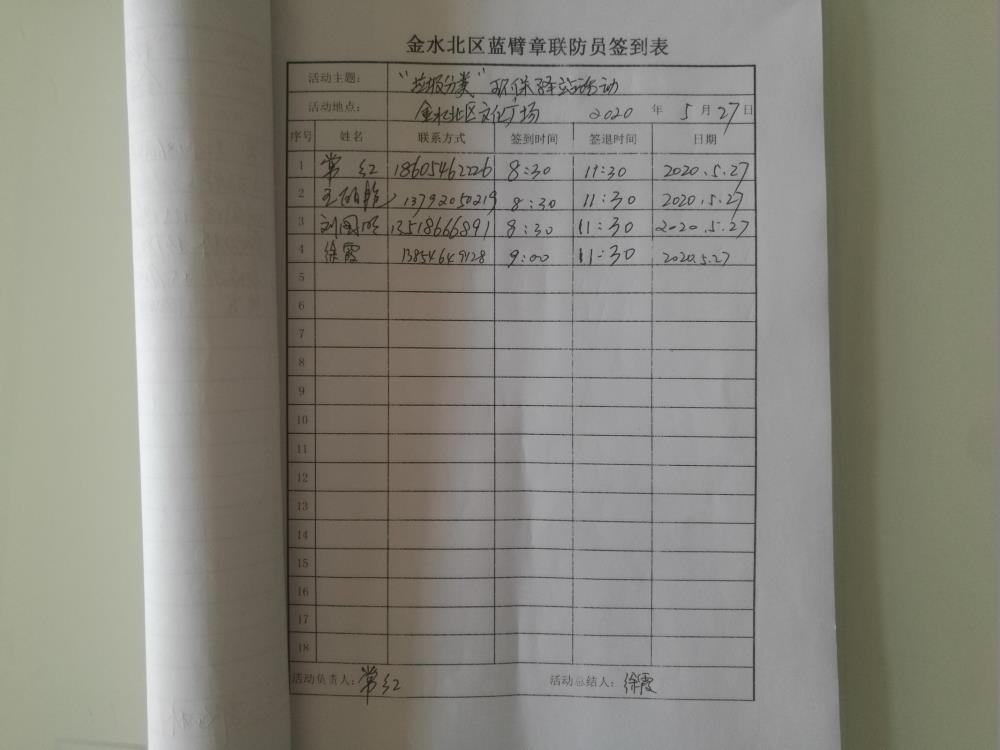 金水北区蓝臂章联防员签到表
活动主题: "垃圾分类"环保驿站活动
活动地点: 金水北区文化广场 2020 年 5 月 27 日
序号 姓名 联系方式 签到时间 签退时间 日期
1 常红 18605462226 8:30 11:30 2020.5.27
2 王 13792050219 8:30 11:30 2020.5.27
3 刘国明 13518666891 8:30 11:30 2020.5.27
4 徐霞 13854649128 9:00 11:30 2020.5.27
5
6
7
8
9
10
11
12
13
14
15
16
17
18
活动负责人: 常红 活动总结人: 徐霞